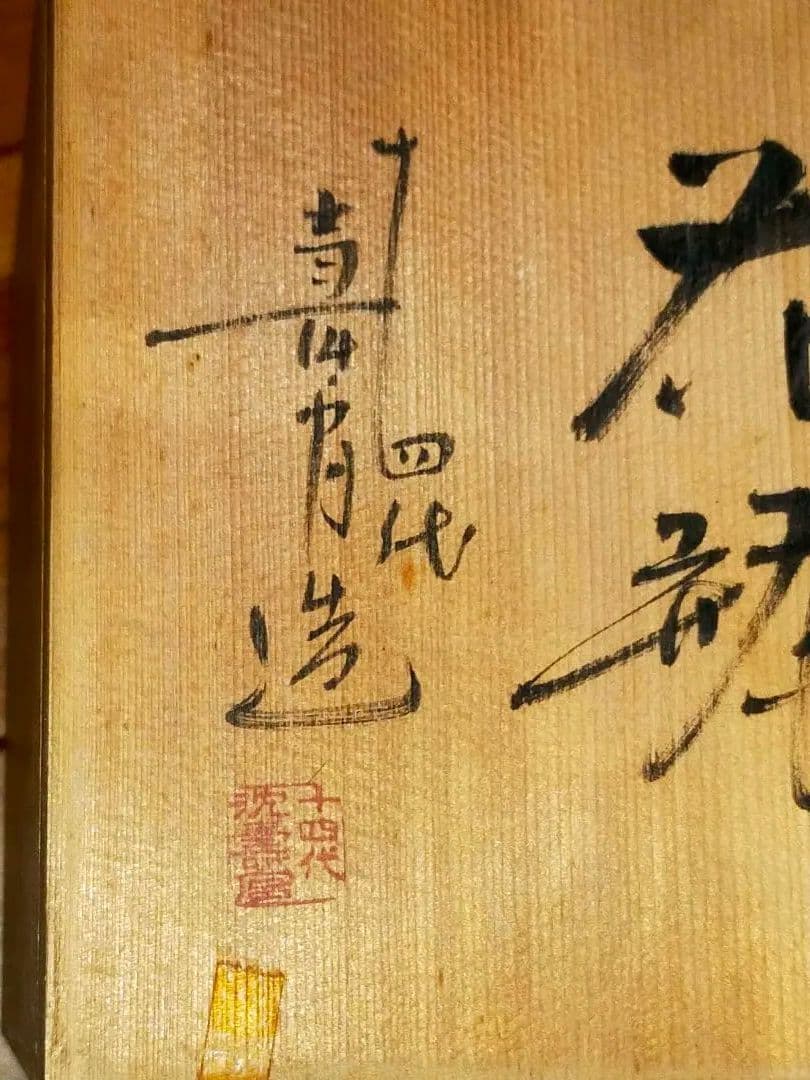 花瓶
十四代
壽官造
十四代
沈壽官